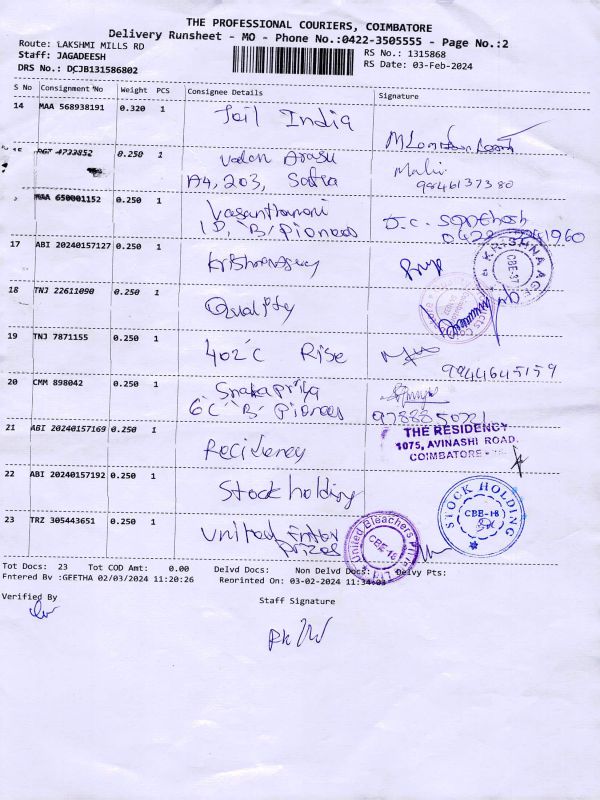 THE PROFESSIONAL COURIERS, COIMBATORE
Delivery Runsheet - MO - Phone No.:0422-3505555 - Page No.:2
Route: LAKSHMI MILLS RD
Staff: JAGADEESH
DRS No.: DCJB131586802
RS No.: 1315868
RS Date: 03-Feb-2024
S No Consignment No Weight PCS Consignee Details Signature
14 MAA 568938191 0.320 1 Jail India
4723852 0.250 1
A4, 203,
9846137380
MAA 650001152 0.250 1 Vasanthamani
1D, 'B' Pioneers
D.C. Santhosh
17 ABI 20240157127 0.250 1
KRISHNA AGE
CBE-37
18 TNJ 22611090 0.250 1 Quality
19 TNJ 7871155 1 402 C Rise
9944645159
20 CMM 898042 0.250 1
6 C 'B' Pioneers
21 ABI 20240157169 0.250 1 Recidency
THE RESIDENCY
1075, AVINASHI ROAD.
COIMBATORE -
22 ABI 20240157192 0.250 1 Stock holding
STOCK HOLDING
CBE-18
23 TRZ 305443651 0.250 1 United
Prizes
United Bleachers
CBE-18
Tot Docs: 23 Tot COD Amt: 0.00 Delvd Docs: Non Delvd Docs: Delvy Pts:
Entered By :GEETHA 02/03/2024 11:20:26 Reprinted On: 03-02-2024 11:34:03
Verified By
Staff Signature